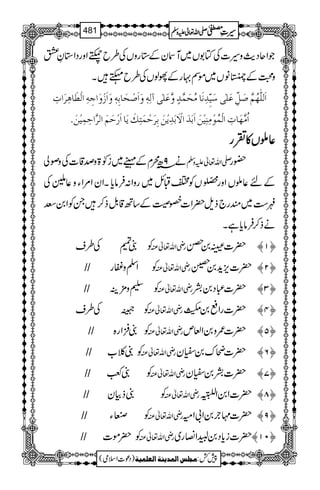 سیرتِ مصطفیٰ صلی اللہ تعالیٰ علیہ وسلم 481
جو احادیث و سیرت کی کتابوں میں آسمان کے ستاروں کی طرح چمکتے اور داستانِ عشق
و محبت کے چمنستانوں میں موسم بہار کے پھولوں کی طرح مہکتے ہیں۔
اَللّٰهُمَّ صَلِّ عَلٰى سَيِّدِنَا مُحَمَّدٍ وَّعَلٰى اٰلِهٖ وَاَصْحَابِهٖ وَاَزْوَاجِهِ الطَّاهِرَاتِ
اُمَّهَاتِ الْمُؤْمِنِيْنَ اَبَدَ الْاٰبِدِيْنَ بِرَحْمَتِكَ يَا اَرْحَمَ الرَّاحِمِيْنَ.
عاملوں کا تقرر
حضور صلی اللہ تعالیٰ علیہ وسلم نے ۹ھ محرم کے مہینے میں زکوٰۃ و صدقات کی وصولی
کے لئے عاملوں اور محصلوں کو مختلف قبائل میں روانہ فرمایا۔ ان امراء و عاملین کی
فہرست میں مندرجہ ذیل حضرات خصوصیت کے ساتھ قابل ذکر ہیں جن کو ابن سعد
نے ذکر فرمایا ہے۔
﴿۱﴾ حضرت عیینہ بن حصن رضی اللہ تعالیٰ عنہ کو بنی تمیم کی طرف
﴿۲﴾ حضرت یزید بن حصین رضی اللہ تعالیٰ عنہ کو اسلم و غفار //
﴿۳﴾ حضرت عباد بن بشر رضی اللہ تعالیٰ عنہ کو سلیم و مزینہ //
﴿۴﴾ حضرت رافع بن مکیث رضی اللہ تعالیٰ عنہ کو جہینہ کی طرف
﴿۵﴾ حضرت عمرو بن العاص رضی اللہ تعالیٰ عنہ کو بنی فزارہ //
﴿۶﴾ حضرت ضحاک بن سفیان رضی اللہ تعالیٰ عنہ کو بنی کلاب //
﴿۷﴾ حضرت بشر بن سفیان رضی اللہ تعالیٰ عنہ کو بنی کعب //
﴿۸﴾ حضرت ابن اللتبیہ رضی اللہ تعالیٰ عنہ کو بنی ذبیان //
﴿۹﴾ حضرت مہاجر بن ابی امیہ رضی اللہ تعالیٰ عنہ کو صنعاء //
﴿۱۰﴾ حضرت زیاد بن لبید انصاری رضی اللہ تعالیٰ عنہ کو حضرموت //
پیش کش: مجلس المدینۃ العلمیۃ (دعوتِ اسلامی)